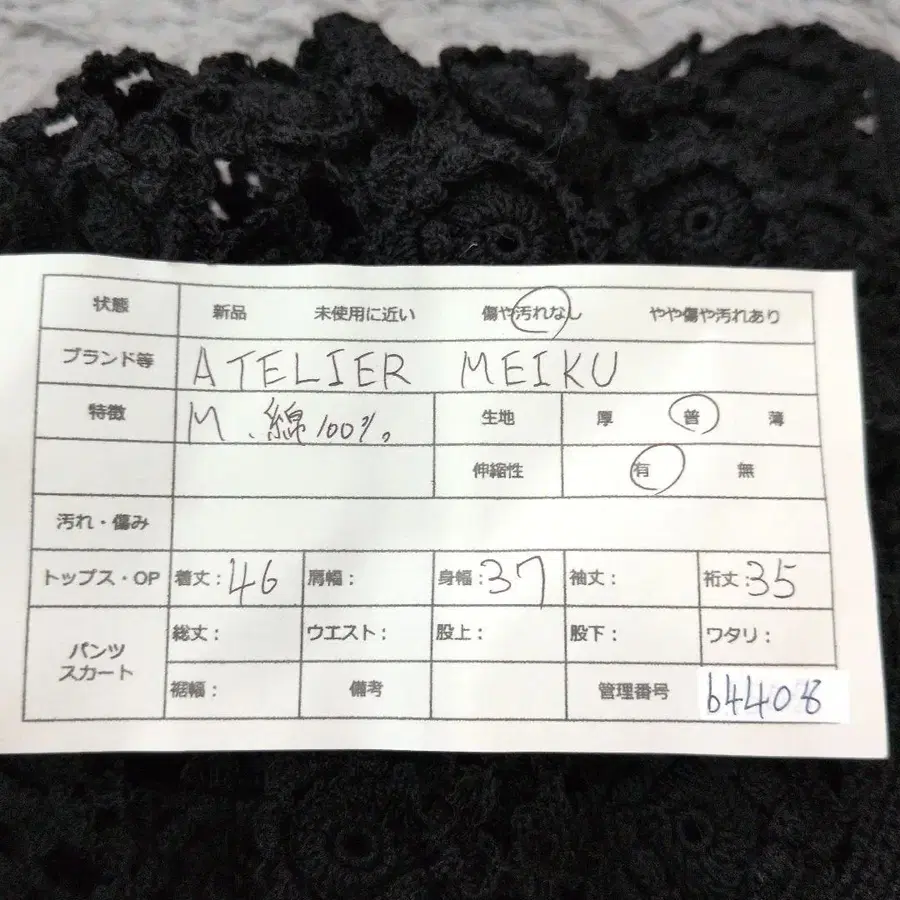 状態 新品 未使用に近い 傷や汚れなし やや傷や汚れあり
ブランド等 ATELIER MEIKU
特徴 M、綿100%。 生地 厚 普 薄
伸縮性 有 無
汚れ・傷み
トップス・OP 着丈:46 肩幅: 身幅:37 袖丈: 裄丈:35
パンツ
スカート
総丈: ウエスト: 股上: 股下: ワタリ:
裾幅: 備考 管理番号 64408